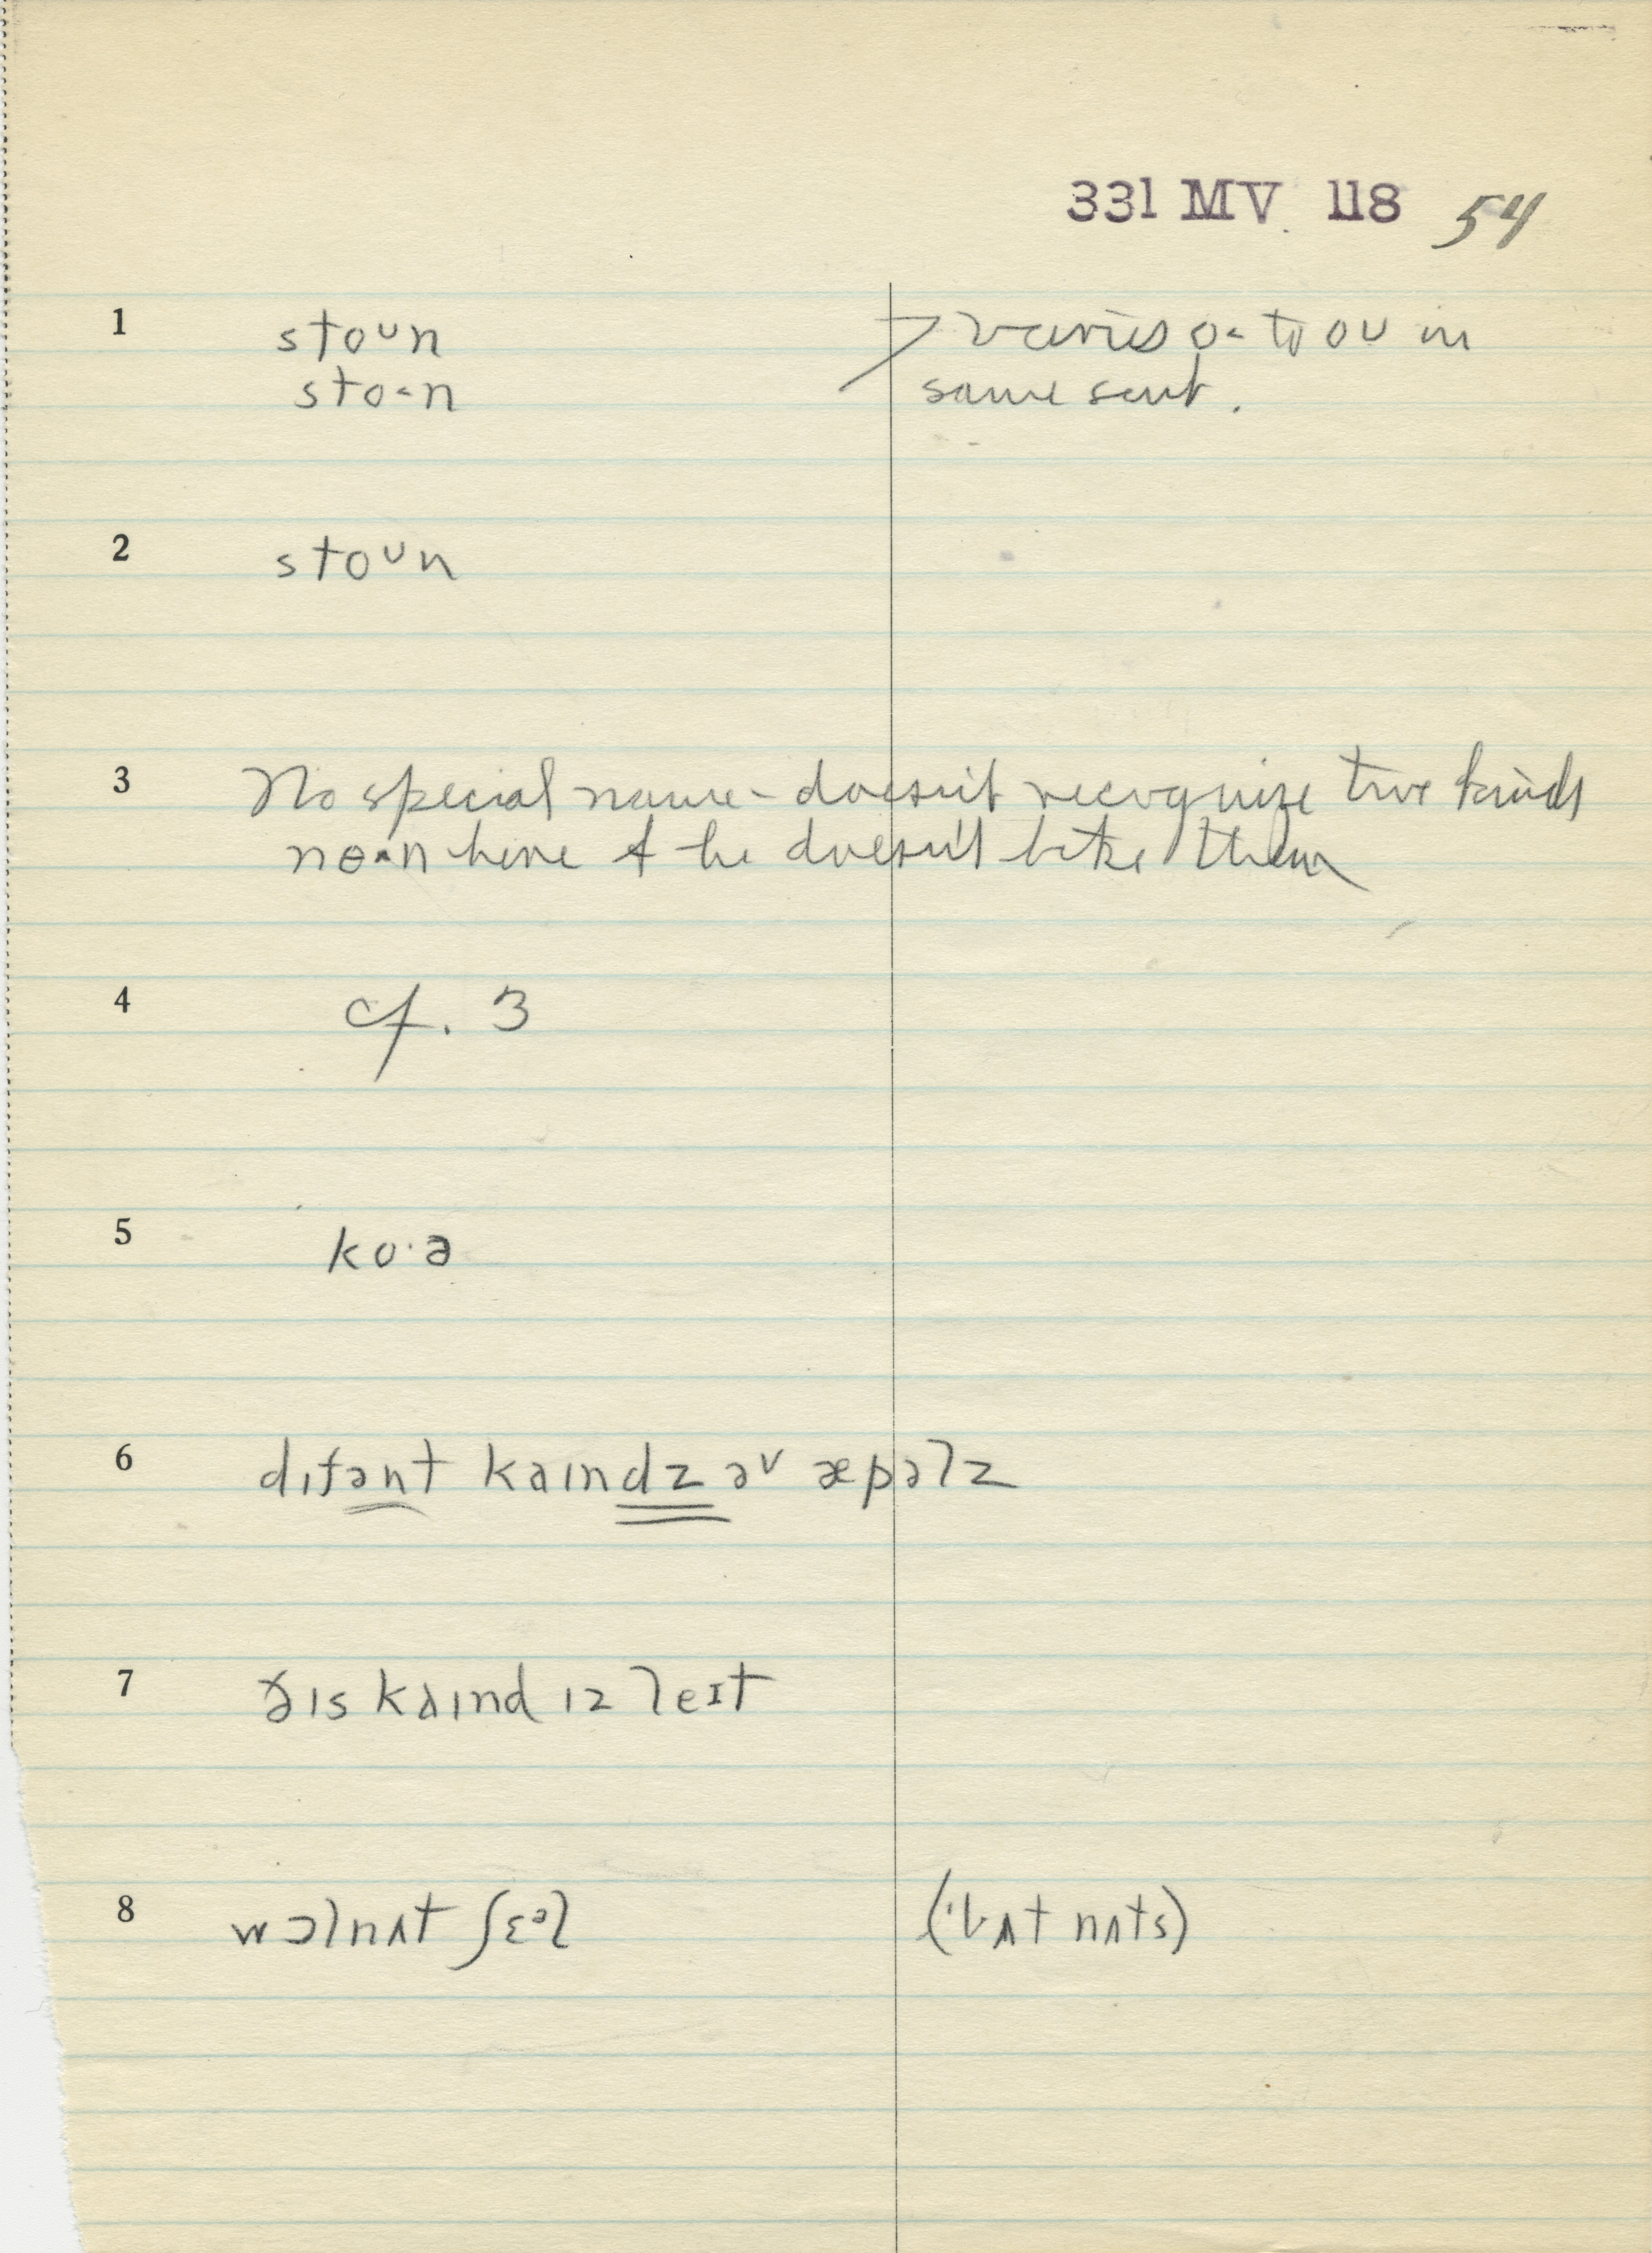 331 MV 118 54
1 stoʊn > varies o˂ to oʊ in
sto˂n same sent.
2 stoʊn
3 No special name – doesn't recognize two kinds
here & he doesn't like them
4 cf. 3
5 ko·ə
6 dɪfənt kaɪndz əv æpəlz
7 ðɪs kaɪnd ɪz leɪt
8 wɔlnʌt ʃɛᵊl (bʌt nʌts)